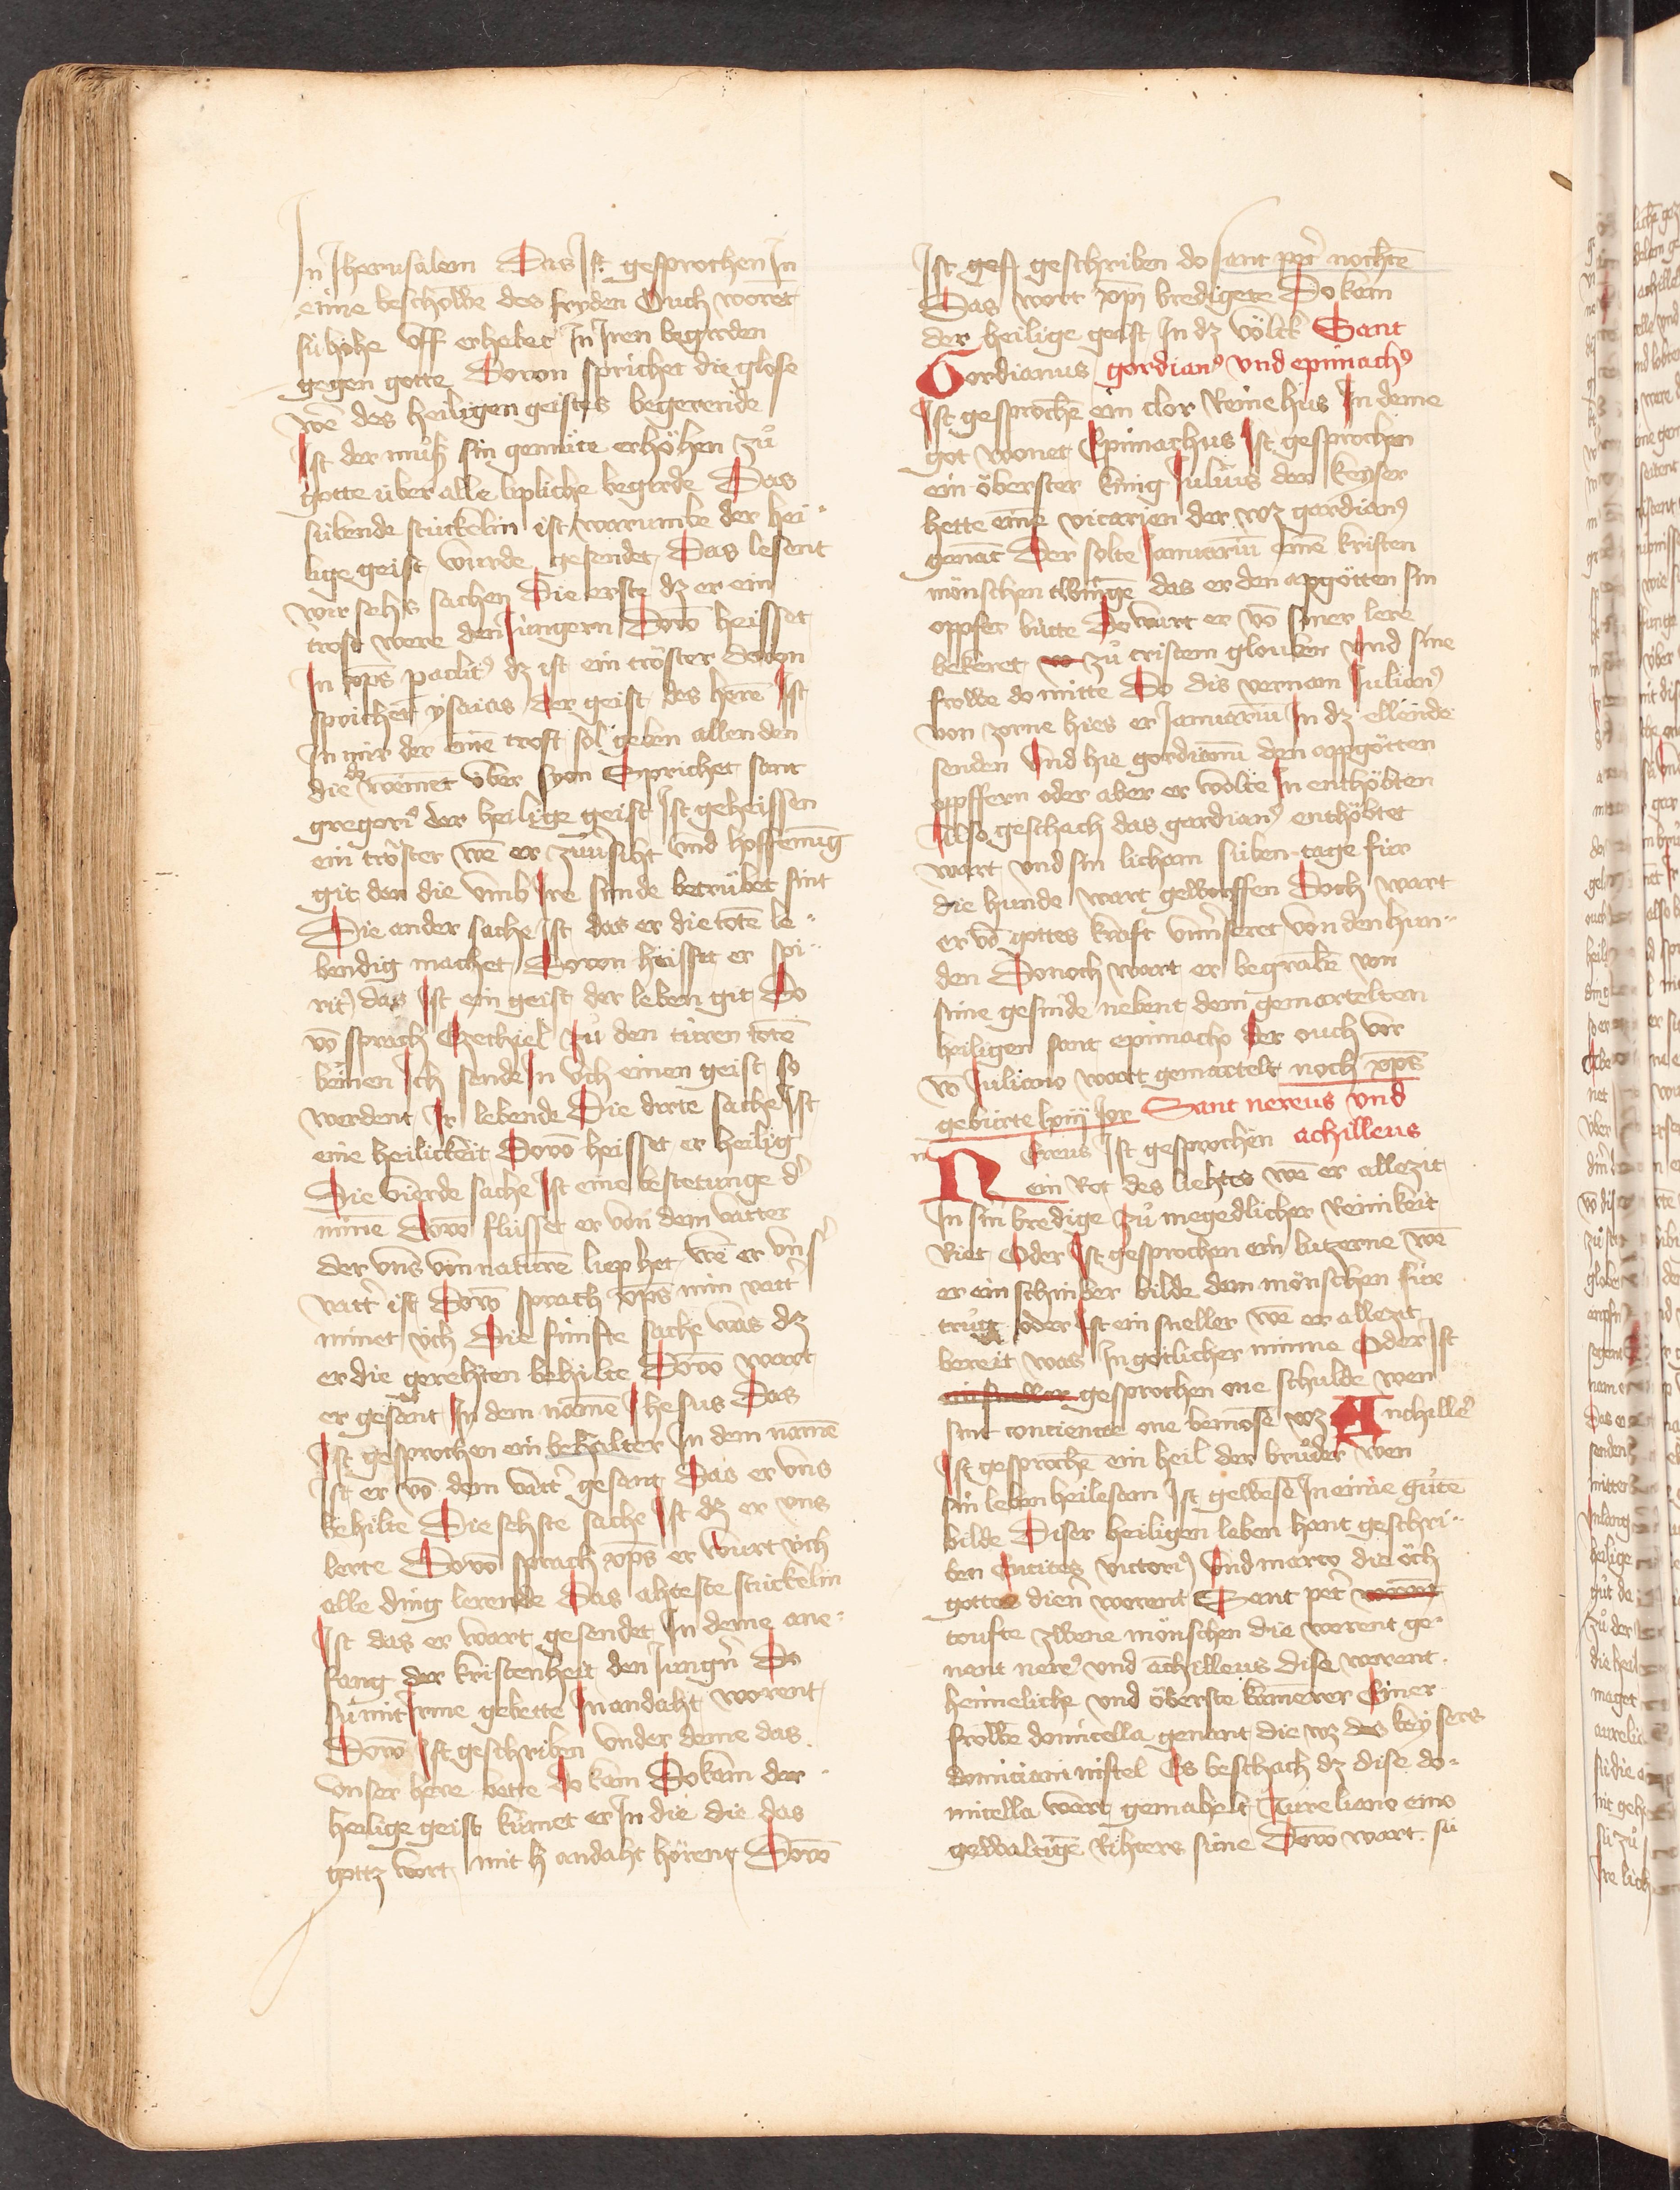 In Iherusalem Das Ist gesprochen In
eime beschöwe des fryden Ouch worent
sü hohe vff erhebet In Iren begirden
gegen gotte Dovon sprichet die glose
wē des heiligen geistes begerende
Ist der muͦß sin gemüte erhöhen zuͦ
gotte über alle lipliche begirde Das
sübende stückelin ist warumbe der hei-
lige geist wurde gesendet Das lesent
wir sehs sachen Die erste dz er ein
trost were den Iüngern Dovō heisset
In xp̄s paclit9 dz ist ein tröster dovon
sprichet ysaias der geist des herē Ist
In mir der eine trost sol geben allen den
die dz weinent über syon Sprichet sant
gregori9 der heilige geist Ist geheissen
ein tröster wē er zuͦuͦsiht vnd hoffenūg
git den die vmb Ire sünde betrübet sint
Die ander sache Ist das er die totē le-
bendig machet Dovon heisset er spi-
rit9 das Ist ein geist der leben git Do
vō sprach Ezechiel zuͦ den türren totē
beinen Ich sende In üch einen geist so
werdent Ir lebende Die dirte sache Ist
eine heilickeit Dovō heisset er heilig
Die vierde sache Ist eine bestetunge d'
minē Dovō flüsset er von dem vatter
der vns von naturē liep het wē er vnſ'
vatt' ist Dovō sprach xp̄s min vatt'
minet üch Die fünfte sache was dz
er die gerehten behilte Dovō wart
er gesant In dem namē Ihesus Das
Ist gesprochen ein behalter In dem namē
Ist er vō dem vatt' gesant Das er vns
behilte Die sehste sache Ist dz er vns
lerte Dovō sprach xp̄s er wurt üch
alle ding lerende Das ahteste stückelin
Ist das er wart gesendet In deme ane-
fang der kristenheit den Iungn̄ Do
sü mit Irme gebette In andaht worent
Dovō Ist geschriben vnder deme das
vnser here bette Do kem Do kam der
heilige geist kumet er In die die das
gottz wort mit andaht hörent Dovō
Ist ges geschriben do sant pet' nochtē
Das wort xp̄i bredigete Do kem
der heilige geist In dz völck Sant
Gordianus gordian9 vnd epimach9
Ist gesprochē ein clor Reine hus In deme
got wonet Epimachus Ist gesprochen
ein öberster künig Iulius der keyser
hette eine vicarien der wz gordian9
genāt Der solte Ianuariū einē kristen
mönschen twingē das er den apgötten sin
oppfer bütte Do wart er vō siner lere
bekeret zuͦ cristem glouben Vnd sine
frowe do mitte Do dis vernam Iulian9
von zorne hies er Ianuariū In dz ellende
senden Vnd hie gordianū den appgötten
oppffern oder aber er wolte In enthöbten
Also geschach das gordian9 enthöbtet
wart vnd sin licham süben tage für
die hunde wart geworffen Doch wart
er vō gottes kraft vmūseret von den hun-
den Donoch wart er begrabē von
sime gesinde nebent dem gemartelten
heiligen sant epimacho der ouch vor
vō Iuliano wart gemartelt noch xp̄s
gebürte lxiij Ior Sant nereus vnd
achilleus
NEreus Ist gesprochen
ein Rot des liehtes wē er allezit
In sin bredige zuͦ megedlicher Reinikeit
Riet Oder Ist gesprochen ein lutzerne wē
er ein schinber bilde dem mönschen für
truͦg Oder Ist ein sneller wē er allezit
bereit was In götlicher minne Oder Ist
gesprochen one schulde wen
sine conciencie one bemose wz Anchille9
Ist gesprochē ein heil der bruͦder wen
sin leben heilesam Ist gewesē In eime guͦtē
bilde Diser heiligen leben hant geschri-
ben Euticēs victori9 vnd marco die öch
gottes dien̄ worent Sant pet'
toufte zwene mönschen die worent ge-
nant nere9 vnd achilleus dise worent
heimeliche vnd öberste kamerer Einer
frowē domicella genant die wz des keysers
domiciani nistel Es beschach dz dise do-
micella wart gemahelt Aureliano eimo
gewaltigē Rihters sune Dovō wart sü